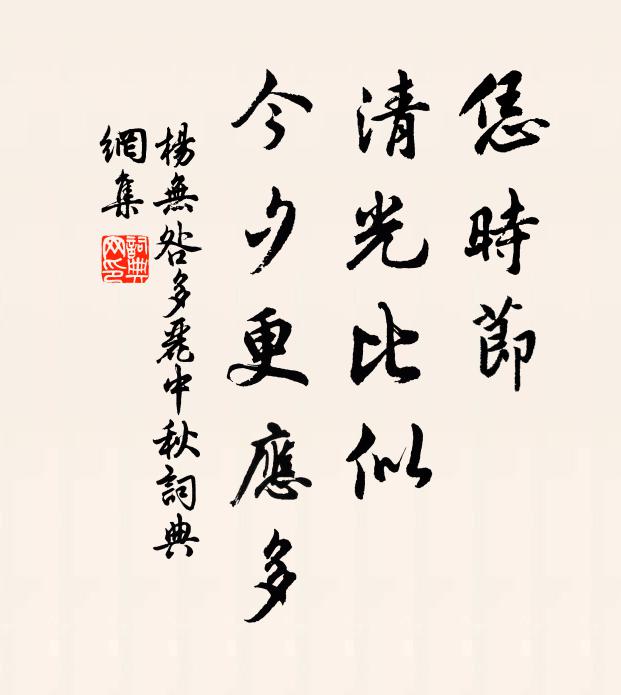 恁時節
清光比似
今夕更應多
楊無咎多麗中秋詞典
網集
詞典網印